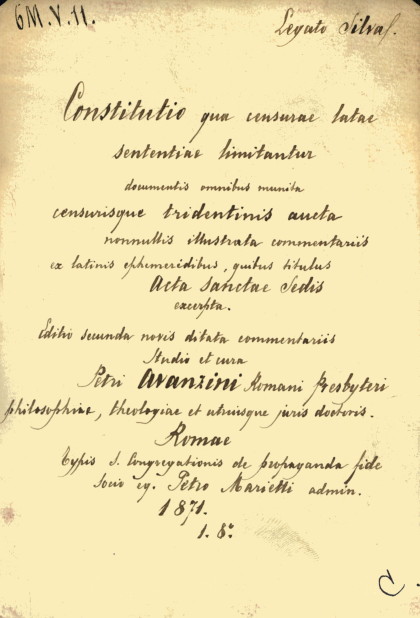 6M.V.11.
Legato Silva
Constitutio qua censurae latae
sententiae limitantur
documentis omnibus munita
censurisque tridentinis aucta
nonnullis illustrata commentariis
ex latinis ephemeridibus, quibus titulus
Acta Sanctae Sedis
excerpta.
Editio secunda novis ditata commentariis
Studio et cura
Petri Avanzini Romani Presbyteri
philosophiae, theologiae et utriusque juris doctoris.
Romae
Typis S. Congregationis de propaganda fide
Socio eq. Petro Marietti admin.
1871.
1. 8.º
C.